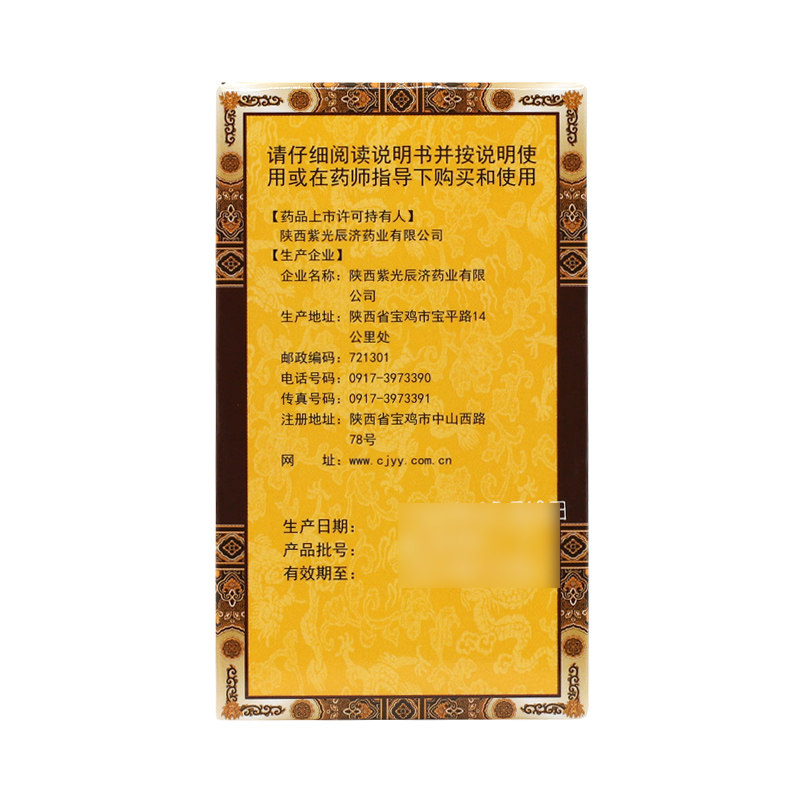 请仔细阅读说明书并按说明使
用或在药师指导下购买和使用
【药品上市许可持有人】
陕西紫光辰济药业有限公司
【生产企业】
企业名称：陕西紫光辰济药业有限
公司
生产地址：陕西省宝鸡市宝平路14
公里处
邮政编码：721301
电话号码：0917-3973390
传真号码：0917-3973391
注册地址：陕西省宝鸡市中山西路
78号
网　　址：www.cjyy.com.cn
生产日期：
产品批号：
有效期至：